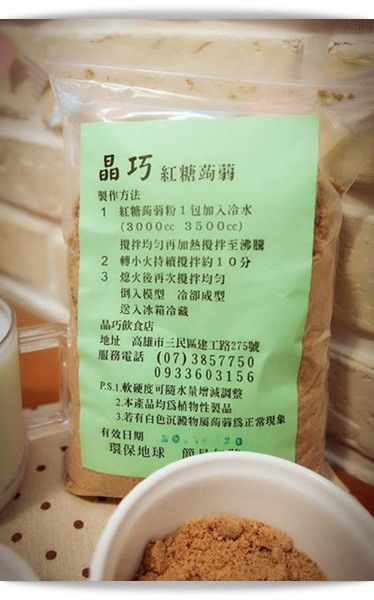 晶巧 紅糖蒟蒻
製作方法
1 紅糖蒟蒻粉1包加入冷水
(3000cc 3500cc)
攪拌均勻再加熱攪拌至沸騰
2 轉小火持續攪拌約10分
3 熄火後再次攪拌均勻
倒入模型 冷卻成型
送入冰箱冷藏
晶巧飲食店
地址 高雄市三民區建工路275號
服務電話 (07)3857750
0933603156
P.S.1.軟硬度可隨水量增減調整
2.本產品均為植物性製品
3.若有白色沉澱物屬蒟蒻為正常現象
有效日期
環保地球 簡易包裝